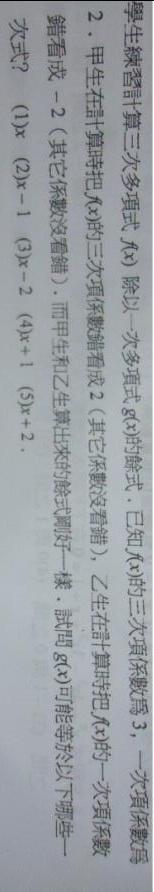 學生練習計算三次多項式 f(x) 除以一次多項式 g(x)的餘式．已知 f(x)的三次項係數為 3，一次項係數為
2．甲生在計算時把 f(x)的三次項係數錯看成 2（其它係數沒看錯），乙生在計算時把 f(x)的一次項係數
錯看成 －2（其它係數沒看錯）．而甲生和乙生算出來的餘式剛好一樣．試問 g(x)可能等於以下哪些一
次式？ (1)x (2)x－1 (3)x－2 (4)x＋1 (5)x＋2．